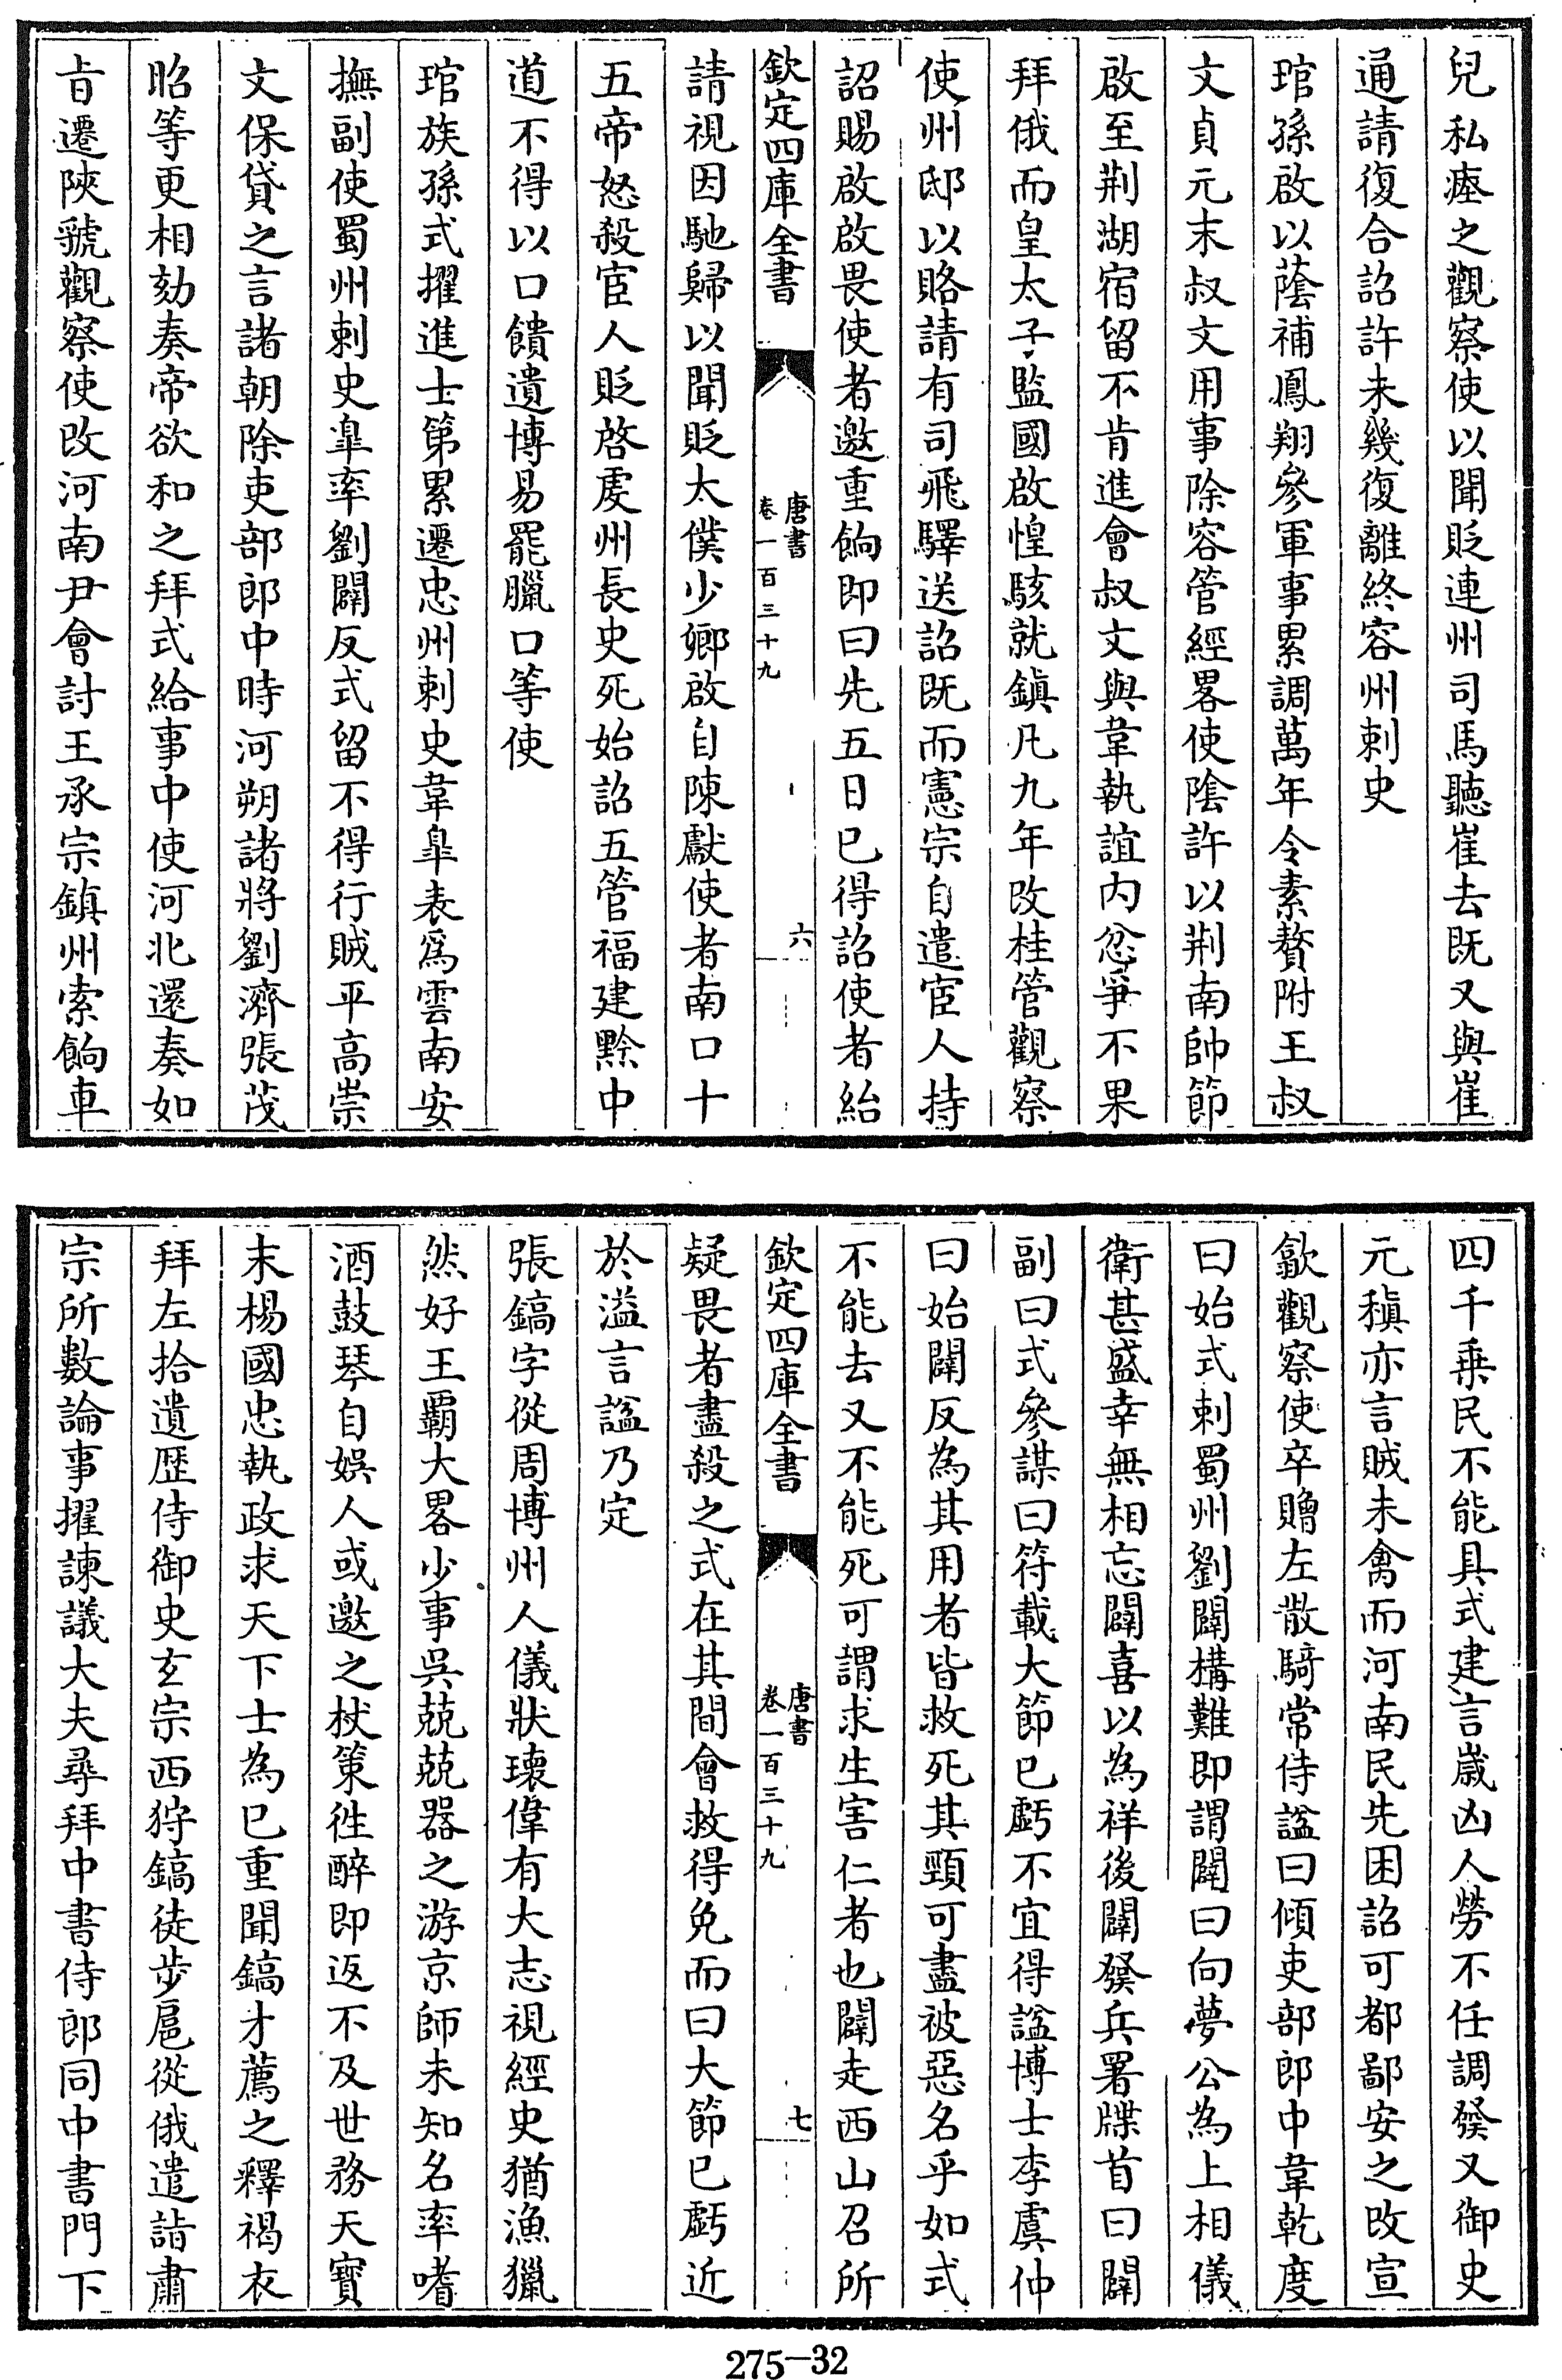 兒私瘞之觀察使以聞貶連州司馬聽崔去既又與崔
通請復合詔許未幾復離終容州刺史
琯孫啟以蔭補鳳翔參軍事累調萬年令素贅附王叔
文貞元末叔文用事除容管經畧使陰許以荆南帥節
啟至荆湖宿留不肯進會叔文與韋執誼内忿爭不果
拜俄而皇太子監國啟惶駭就鎮凡九年改桂管觀察
使州邸以賂請有司飛驛送詔既而憲宗自遣宦人持
詔賜啟啟畏使者邀重餉即曰先五日已得詔使者紿
欽定四庫全書
唐書
卷一百三十九
六
請視因馳歸以聞貶太僕少卿啟自陳獻使者南口十
五帝怒殺宦人貶啓虔州長史死始詔五管福建黔中
道不得以口饋遺博易罷臘口等使
琯族孫式擢進士第累遷忠州刺史韋臯表爲雲南安
撫副使蜀州刺史臯卒劉闢反式留不得行賊平高崇
文保貸之言諸朝除吏部郎中時河朔諸將劉濟張茂
昭等更相劾奏帝欲和之拜式給事中使河北還奏如
旨遷陜虢觀察使改河南尹會討王承宗鎮州索餉車
四千乗民不能具式建言歲凶人勞不任調發又御史
元稹亦言賊未禽而河南民先困詔可都鄙安之改宣
歙觀察使卒贈左散騎常侍諡曰傾吏部郎中韋乾度
曰始式刺蜀州劉闢構難即謂闢曰向夢公為上相儀
衛甚盛幸無相忘闢喜以為祥後闢發兵署牒首曰闢
副曰式參謀曰符載大節已虧不宜得諡博士李虞仲
曰始闢反為其用者皆救死其頸可盡被惡名乎如式
不能去又不能死可謂求生害仁者也闢走西山召所
欽定四庫全書
唐書
卷一百三十九
七
疑畏者盡殺之式在其間會救得免而曰大節已虧近
於溢言諡乃定
張鎬字從周博州人儀狀瓌偉有大志視經史猶漁獵
然好王霸大畧少事吳兢兢器之游京師未知名率嗜
酒鼓琴自娱人或邀之杖策徃醉即返不及世務天寳
末楊國忠執政求天下士為已重聞鎬才薦之釋褐衣
拜左拾遺歷侍御史玄宗西狩鎬徒步扈從俄遣詣肅
宗所數論事擢諫議大夫尋拜中書侍郎同中書門下
275-32